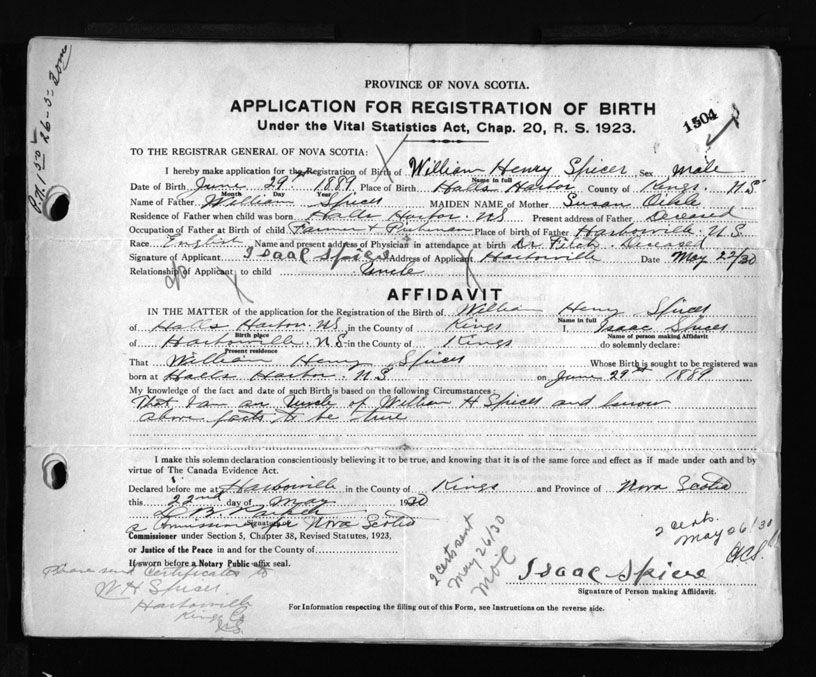 PROVINCE OF NOVA SCOTIA.
APPLICATION FOR REGISTRATION OF BIRTH
Under the Vital Statistics Act, Chap. 20, R. S. 1923.
1504
TO THE REGISTRAR GENERAL OF NOVA SCOTIA:
I hereby make application for the Registration of Birth of William Henry Spicer Sex Male
Name in full
Date of Birth June 29th 1889 Place of Birth Halls Harbor County of Kings. N.S
Month Day Year
Name of Father William Spicer MAIDEN NAME of Mother Susan
Residence of Father when child was born Halls Harbor. NS Present address of Father Deceased
Occupation of Father at Birth of child Farmer + Place of birth of Father Harborville N.S.
Race English Name and present address of Physician in attendance at birth Dr. Fitch. Deceased
Signature of Applicant Isaac Spicer Address of Applicant Harborville Date May 22/30
Relationship of Applicant to child Uncle
AFFIDAVIT
IN THE MATTER of the application for the Registration of the Birth of William Henry Spicer
Name in full
of Halls Harbor. NS in the County of Kings I, Isaac Spicer
Birth place Name of person making Affidavit
of Harborville. N.S. in the County of Kings do solemnly declare:
Present residence
That William Henry Spicer Whose Birth is sought to be registered was
born at Halls Harbor. N.S. on June 29th 1889
My knowledge of the fact and date of such Birth is based on the following Circumstances:
That I am an Uncle of William H Spicer and know
above facts to be true
I make this solemn declaration conscientiously believing it to be true, and knowing that it is of the same force and effect as if made under oath and by
virtue of The Canada Evidence Act.
Declared before me at Harborville in the County of Kings and Province of Nova Scotia
this 22nd day of May 1930
Signature
a Commissioner for Nova Scotia
Commissioner under Section 5, Chapter 38, Revised Statutes, 1923,
or Justice of the Peace in and for the County of
If sworn before a Notary Public affix seal.
Please send Certificates to
W H Spicer
Harborville
Kings Co
N.S.
2 certs sent
May 26/30
2 certs.
May 26/30
Isaac Spicer
Signature of Person making Affidavit.
For Information respecting the filling out of this Form, see Instructions on the reverse side.